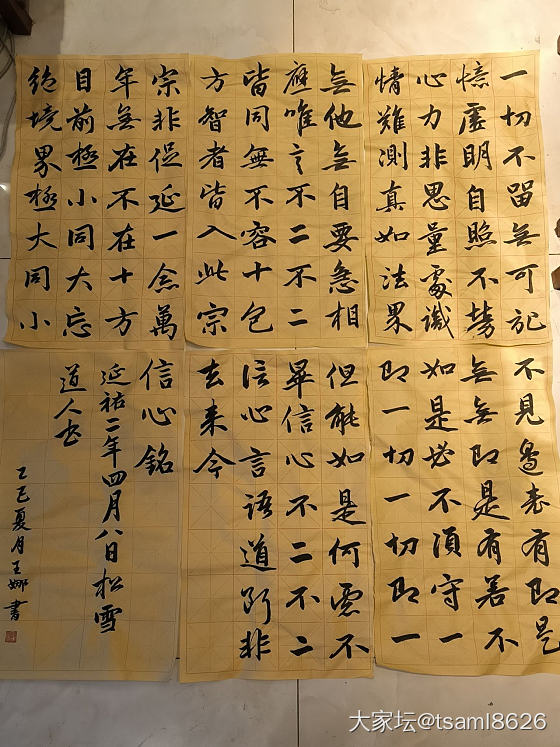 一切不留無可記
憶虛明自照不勞
心力非思量處識
情難測真如法界
無他無自要急相
應唯言不二不二
皆同無不容十包
方智者皆入此宗
宗非促延一念萬
年無在不在十方
目前極小同大忘
絕境界極大同小
不見邊表有即是
無無即是有若不
如是必不須守一
即一切一切即一
但能如是何慮不
畢信心不二不二
信心言語道斷非
去來今
信心銘
延祐二年四月八日松雪
道人書
乙巳夏月王娜書
大家坛@tsaml8626